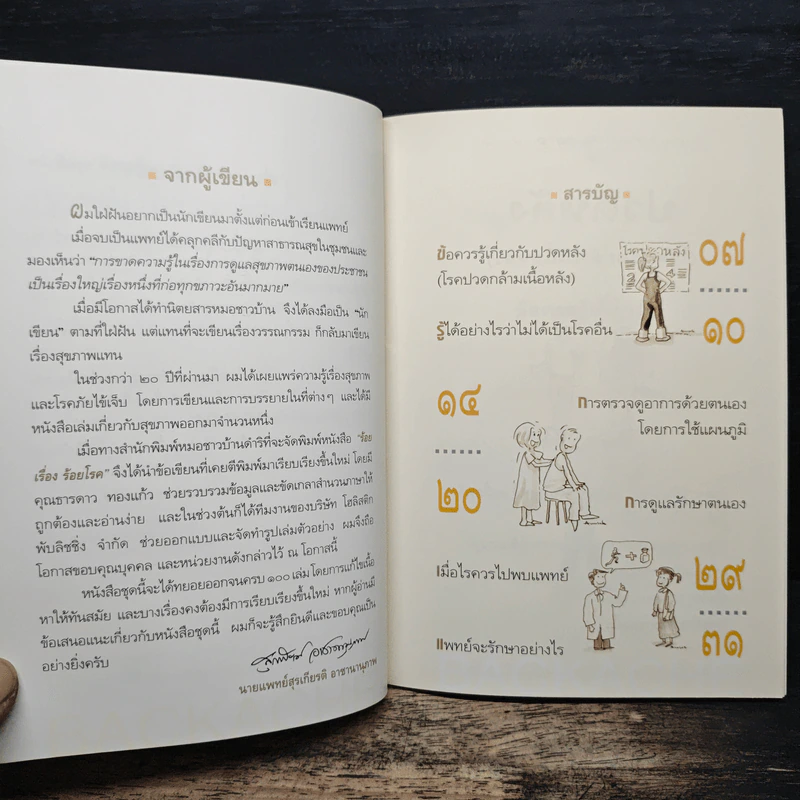 จากผู้เขียน
ผมใฝ่ฝันอยากเป็นนักเขียนมาตั้งแต่ก่อนเข้าเรียนแพทย์
เมื่อจบเป็นแพทย์ได้คลุกคลีกับปัญหาสาธารณสุขในชุมชนและ
มองเห็นว่า "การขาดความรู้ในเรื่องการดูแลสุขภาพตนเองของประชาชน
เป็นเรื่องใหญ่เรื่องหนึ่งที่ก่อทุกขภาวะอันมากมาย"
เมื่อมีโอกาสได้ทำนิตยสารหมอชาวบ้าน จึงได้ลงมือเป็น "นัก
เขียน" ตามที่ใฝ่ฝัน แต่แทนที่จะเขียนเรื่องวรรณกรรม ก็กลับมาเขียน
เรื่องสุขภาพแทน
ในช่วงกว่า ๒๐ ปีที่ผ่านมา ผมได้เผยแพร่ความรู้เรื่องสุขภาพ
และโรคภัยไข้เจ็บ โดยการเขียนและการบรรยายในที่ต่างๆ และได้มี
หนังสือเล่มเกี่ยวกับสุขภาพออกมาจำนวนหนึ่ง
เมื่อทางสำนักพิมพ์หมอชาวบ้านดำริที่จะจัดพิมพ์หนังสือ "ร้อย
เรื่อง ร้อยโรค" จึงได้นำข้อเขียนที่เคยตีพิมพ์มาเรียบเรียงขึ้นใหม่ โดยมี
คุณธารดาว ทองแก้ว ช่วยรวบรวมข้อมูลและขัดเกลาสำนวนภาษาให้
ถูกต้องและอ่านง่าย และในช่วงต้นก็ได้ทีมงานของบริษัท โฮลิสติก
พับลิชชิ่ง จำกัด ช่วยออกแบบและจัดทำรูปเล่มตัวอย่าง ผมจึงถือ
โอกาสขอบคุณบุคคล และหน่วยงานดังกล่าวไว้ ณ โอกาสนี้
หนังสือชุดนี้จะได้ทยอยออกจนครบ ๑๐๐ เล่ม โดยการแก้ไขเนื้อ
หาให้ทันสมัย และบางเรื่องคงต้องมีการเรียบเรียงขึ้นใหม่ หากผู้อ่านมี
ข้อเสนอแนะเกี่ยวกับหนังสือชุดนี้ ผมก็จะรู้สึกยินดีและขอบคุณเป็น
อย่างยิ่งครับ
นายแพทย์สุรเกียรติ อาชานานุภาพ
สารบัญ
ข้อควรรู้เกี่ยวกับปวดหลัง
(โรคปวดกล้ามเนื้อหลัง)
โรคปวดหลัง
๐๗
รู้ได้อย่างไรว่าไม่ได้เป็นโรคอื่น
๑๐
๑๔
การตรวจดูอาการด้วยตนเอง
โดยการใช้แผนภูมิ
๒๐
การดูแลรักษาตนเอง
เมื่อไรควรไปพบแพทย์
๒๙
แพทย์จะรักษาอย่างไร
๓๑